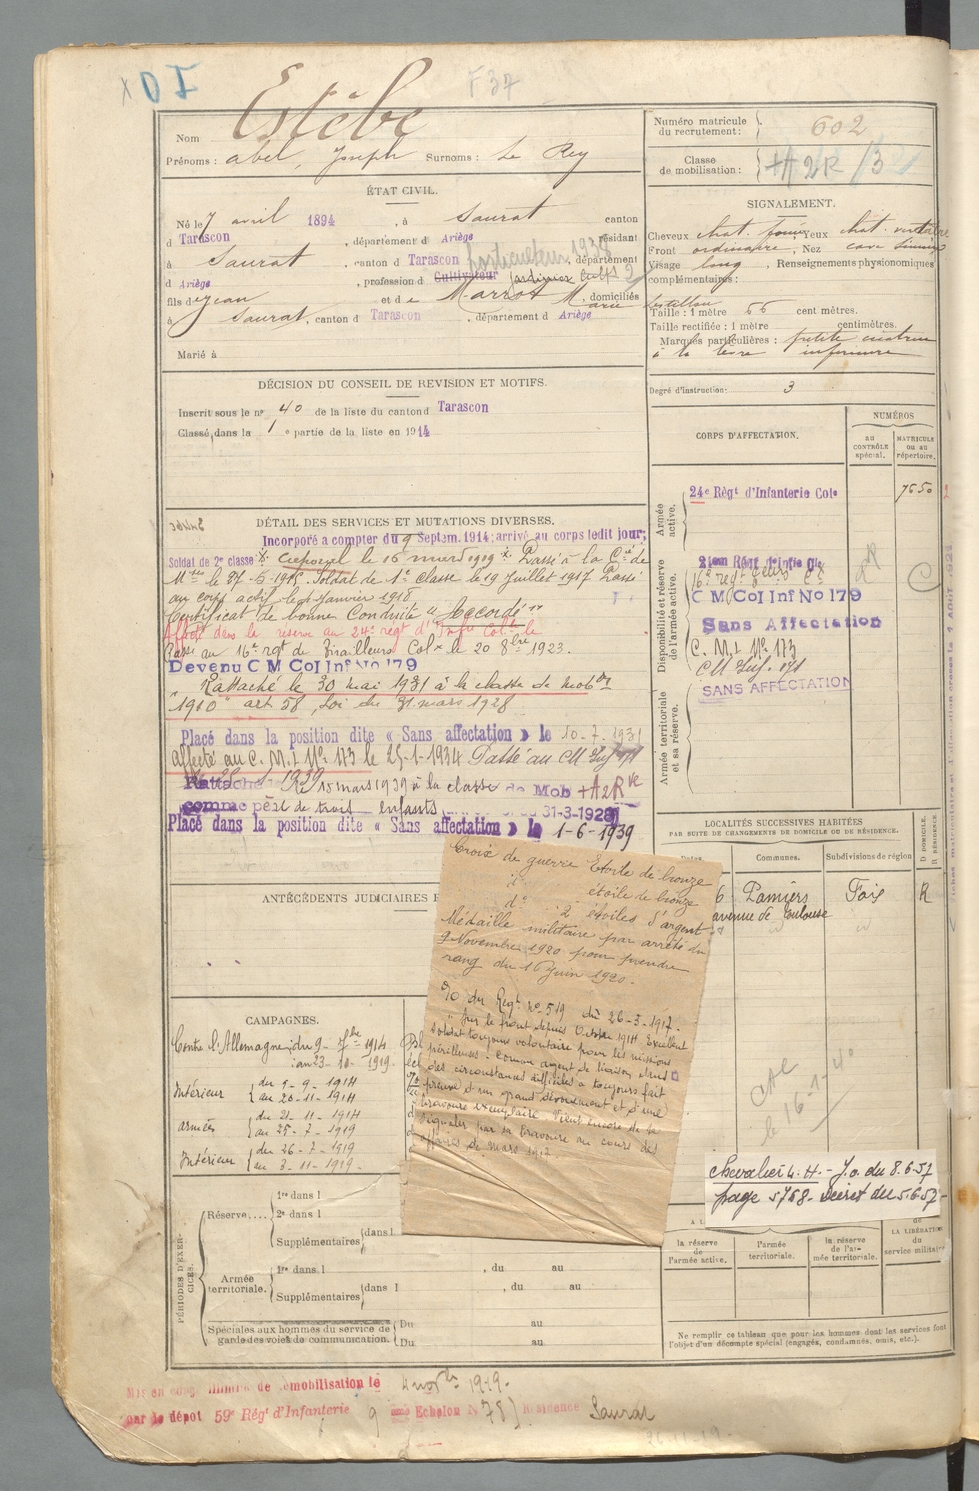 x OI
F 37
Nom Estèbe
Prénoms : abel, Joseph Surnoms : Le Rey
Numéro matricule du recrutement : 602
Classe de mobilisation :
ÉTAT CIVIL.
Né le 7 avril 1894, à Saurat canton
d Tarascon, département d Ariège, résidant
à Saurat, canton d Tarascon, département
d Ariège, profession d Cultivateur jardinier
fils de Jean et de Marrot Marie, domiciliés
à Saurat, canton d Tarascon, département d Ariège
Marié à
SIGNALEMENT.
Cheveux chat. foncé, Yeux chat.
Front ordinaire, Nez cave
Visage long, Renseignements physionomiques
complémentaires :
Taille : 1 mètre 66 centimètres.
Taille rectifiée : 1 mètre centimètres.
Marques particulières : petite cicatrice
à la lèvre inférieure
Degré d'instruction : 3
DÉCISION DU CONSEIL DE REVISION ET MOTIFS.
Inscrit sous le nº 40 de la liste du canton d Tarascon
Classé dans la 1e partie de la liste en 1914
CORPS D'AFFECTATION.
NUMÉROS
au CONTRÔLE spécial.
MATRICULE ou au répertoire.
Armée active.
24e Régt d'Infanterie Cole 7650
Disponibilité et réserve de l'armée active.
C M Col Inf No 179
Sans Affectation
C. M. I. Nº 173
SANS AFFECTATION
Armée territoriale et sa réserve.
DÉTAIL DES SERVICES ET MUTATIONS DIVERSES.
Incorporé a compter du 9 Septem. 1914; arrivé au corps ledit jour;
Soldat de 2e classe. Caporal le 16 mars 1919. Passé à la Cie de
Mses le 27-6-1916. Soldat de 1e Classe le 19 Juillet 1917 Passé
au corps actif le 1er Janvier 1918
Certificat de bonne Conduite "Accordé"
Affecté dans la réserve au 24e régt d'Infie Colle
Passé au 16e rgt de Tirailleurs Colx le 20 8bre 1923.
Devenu C M Col Inf No 179
Rattaché le 30 mai 1931 à la classe de mobon
1910 art 58, Loi du 31 mars 1928
Placé dans la position dite « Sans affectation » le 10-7-1931
Affecté au C. M. I Nº 173 le 25-1-1934 Passé au CM Inf 171
Rattaché le 15 mars 1939 à la classe de Mob
comme père de trois enfants 31-3-1928
Placé dans la position dite « Sans affectation » le 1-6-1939
LOCALITÉS SUCCESSIVES HABITÉES
PAR SUITE DE CHANGEMENTS DE DOMICILE OU DE RÉSIDENCE.
Dates. Communes. Subdivisions de région D. DOMICILE. R. RÉSIDENCE
6 Pamiers Foix R
avenue de Toulouse
ANTÉCÉDENTS JUDICIAIRES E
Croix de guerre Etoile de bronze
do étoile de bronze
do 2 étoiles d'argent
Médaille militaire par arrêté du
9 Novembre 1920 pour prendre
rang du 16 Juin 1920.
O/ du Regt no 519 du 26-3-1917.
"Sur le front depuis Octobre 1914 Excellent
soldat toujours volontaire pour les missions
périlleuses. Comme agent de liaison dans
des circonstances difficiles a toujours fait
preuve d'un grand dévouement et d'une
bravoure exemplaire. Vient encore de se
signaler par sa bravoure au cours des
affaires de mars 1917
CAMPAGNES.
Contre l'Allemagne: du 9- 7bre 1914
au 23- 10- 1919.
Intérieur { du 9-9-1914
au 20-11-1914
armées { du 21-11-1914
au 25-7-1919
Intérieur { du 26-7-1919
au 3-11-1919.
le 16-1-40
Chevalier L. H. - J.o. du 8.6.57
page 5768- Décret du 5.6.57-
PÉRIODES D'EXERCICES.
Réserve....
1re dans l
2e dans l
Supplémentaires dans l
Armée territoriale.
1re dans l , du au
Supplémentaires dans l , du au
Spéciales aux hommes du service de garde des voies de communication.
Du au
Du au
la réserve de l'armée active.
l'armée territoriale.
la réserve de l'armée territoriale.
de LA LIBÉRATION du service militaire
Ne remplir ce tableau que pour les hommes dont les services font
l'objet d'un décompte spécial (engagés, condamnés, omis, etc.).
Mis en congé illimité de démobilisation le 4 nov 1919.
par le dépot 59e Régt d'Infanterie 9 eme Echelon N 78 Résidence Saurat